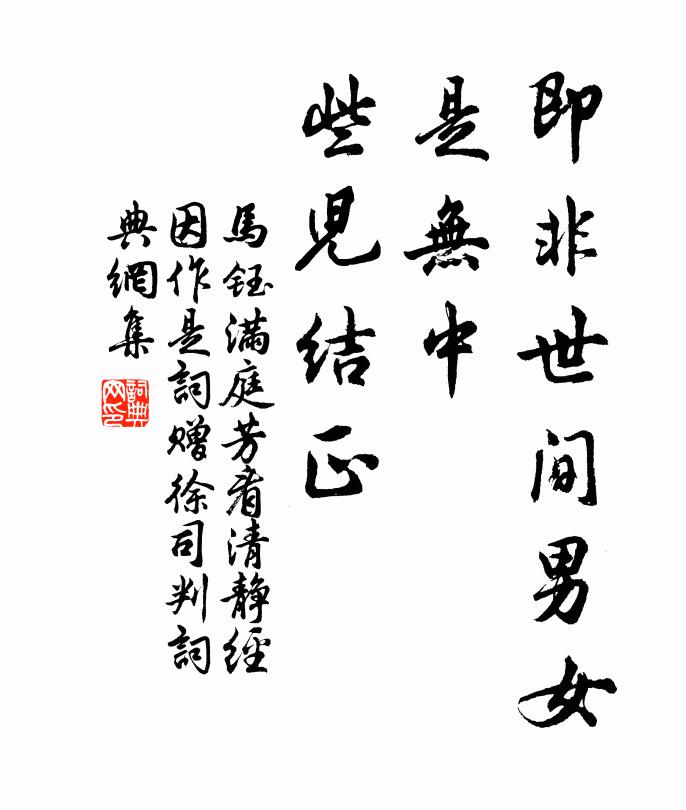 即非世间男女
是無中
些児结正
馬钰满庭芳看清靜經
因作是詞赠徐司判詞
典網集
詞典網印